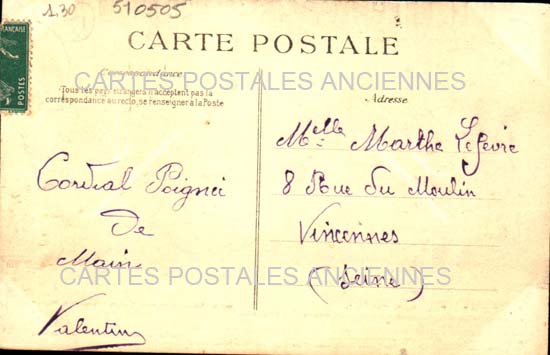 1.30
510505
CARTE POSTALE
Correspondance
Tous les pays étrangers n'acceptent pas la
correspondance au recto, se renseigner à la Poste
Adresse
CARTES POSTALES ANCIENNES
Cordial Poignei
de
Main
Valentin
Melle Marthe Lefèvre
8 Rue du Moulin
Vincennes
(Seine)
CARTES POSTALES ANCIENNES